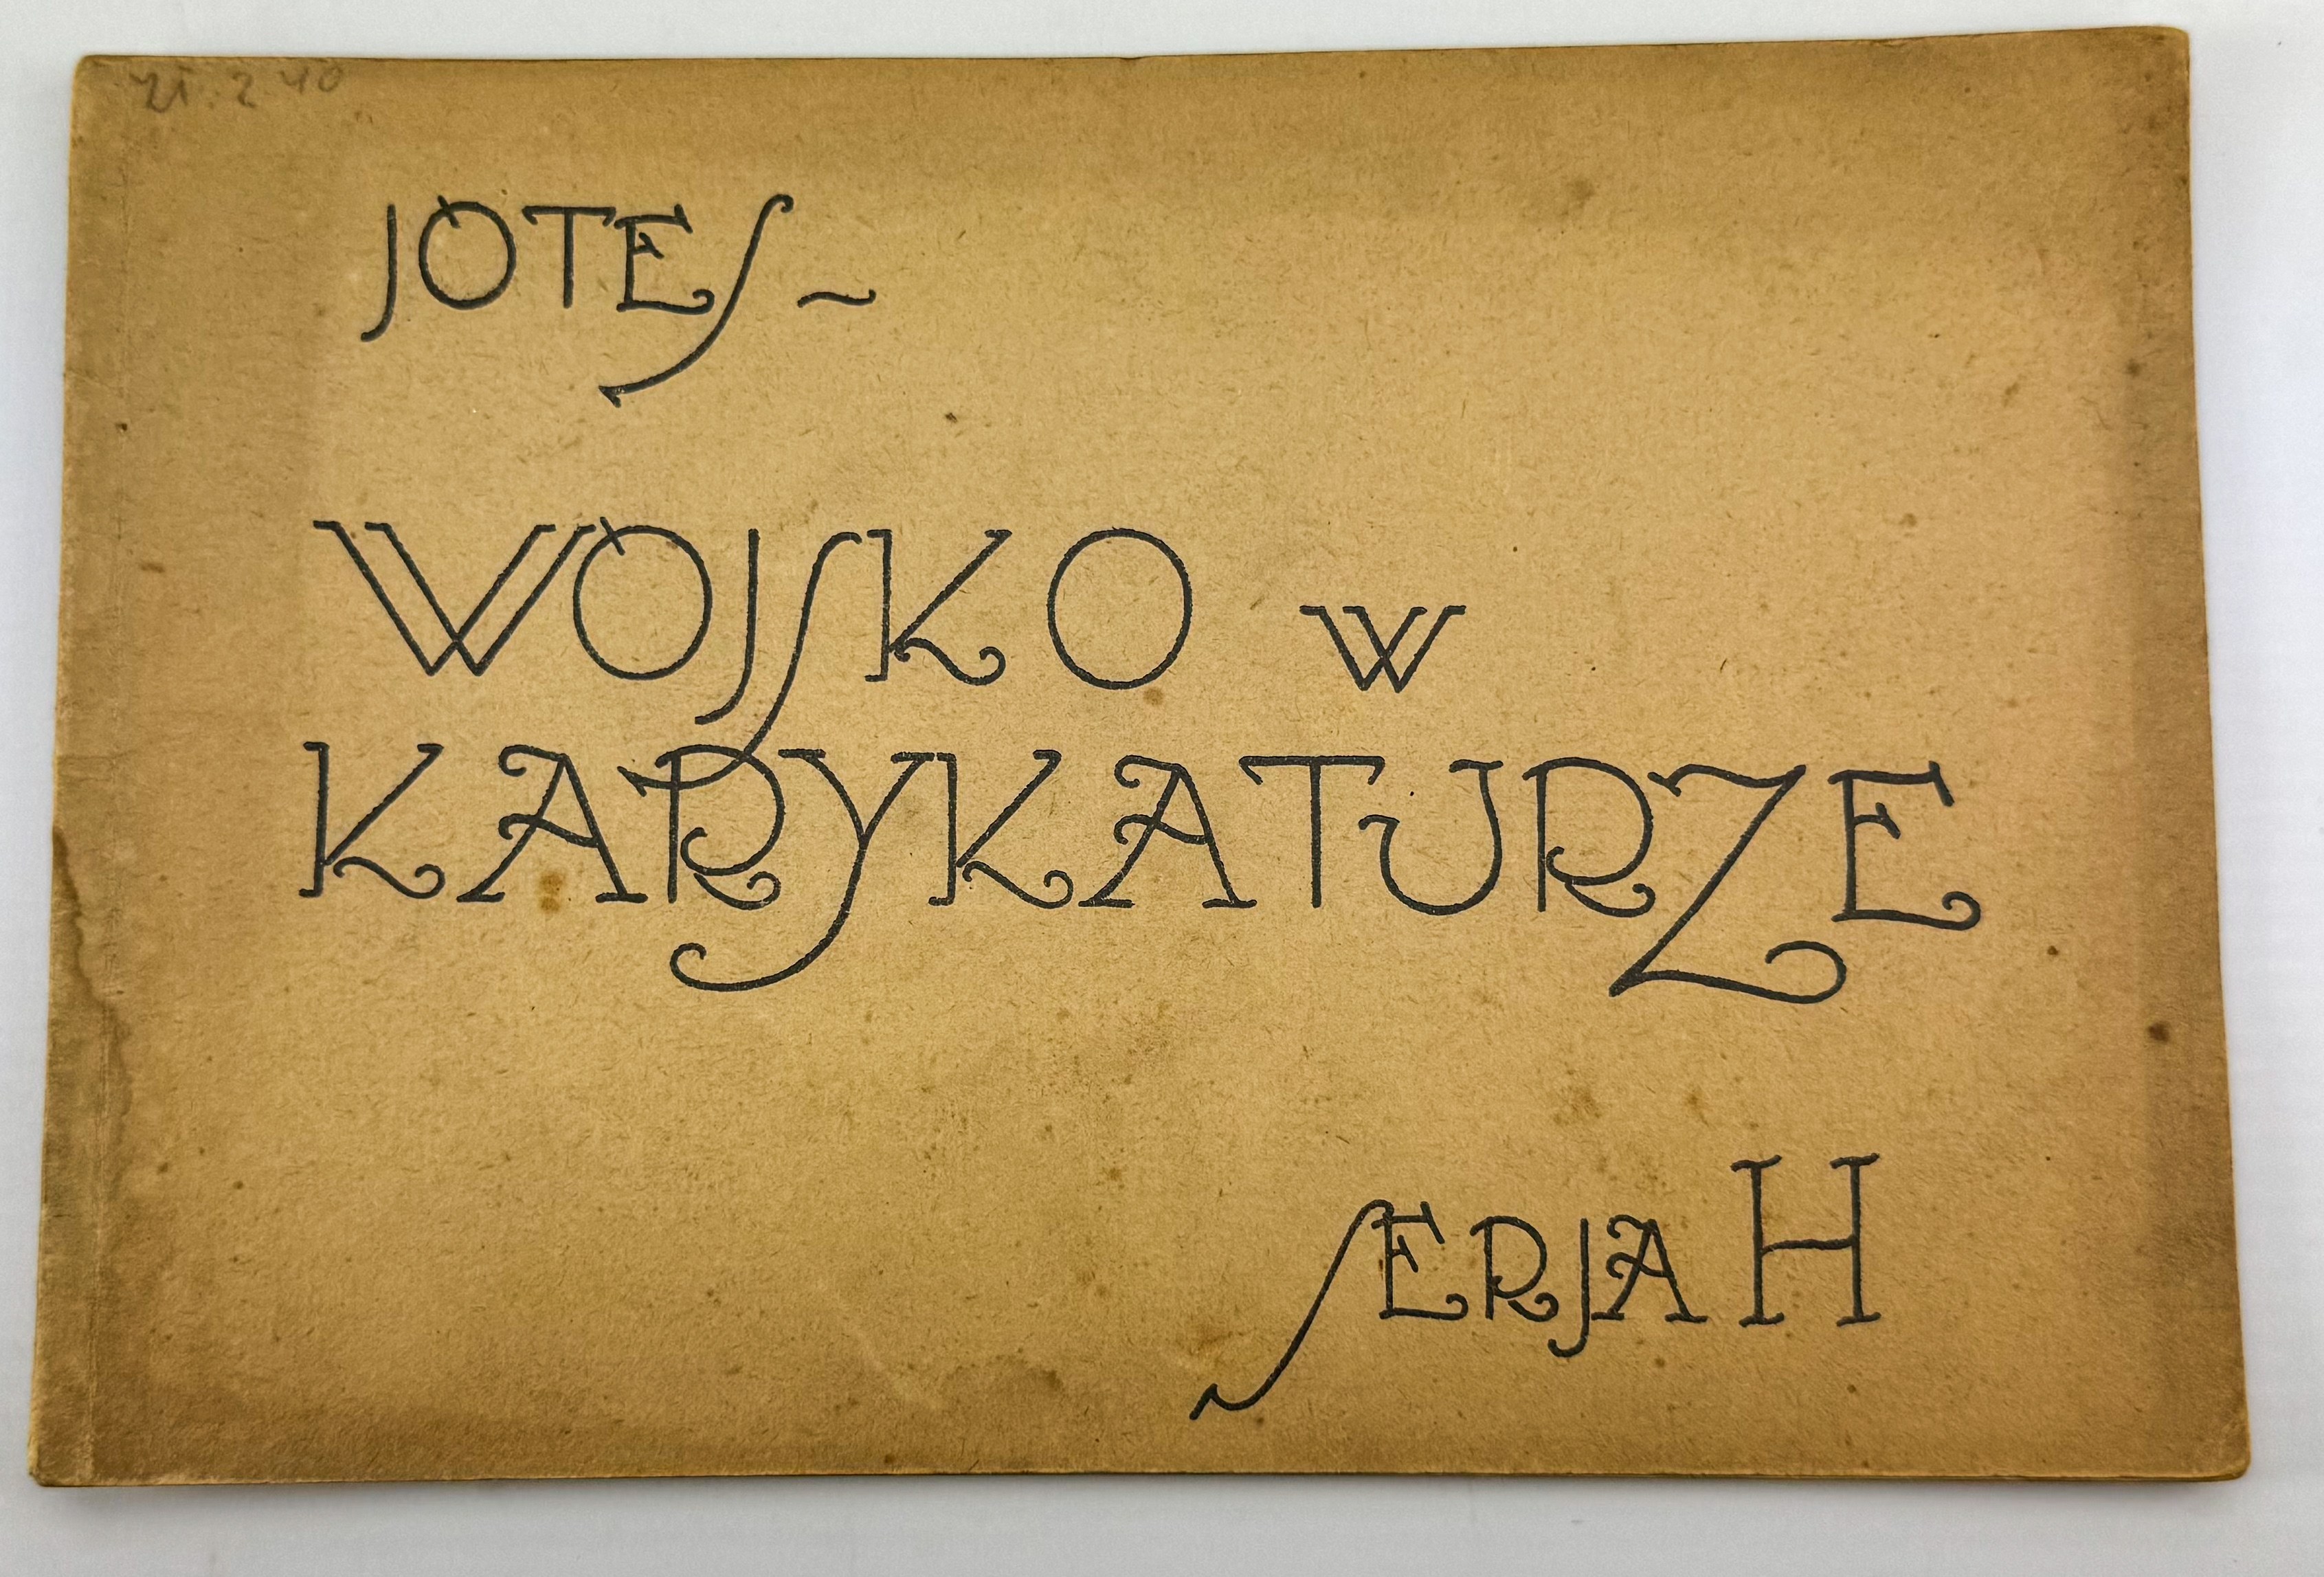 JOTES ~
WOJSKO w
KARYKATURZE
SERJA H